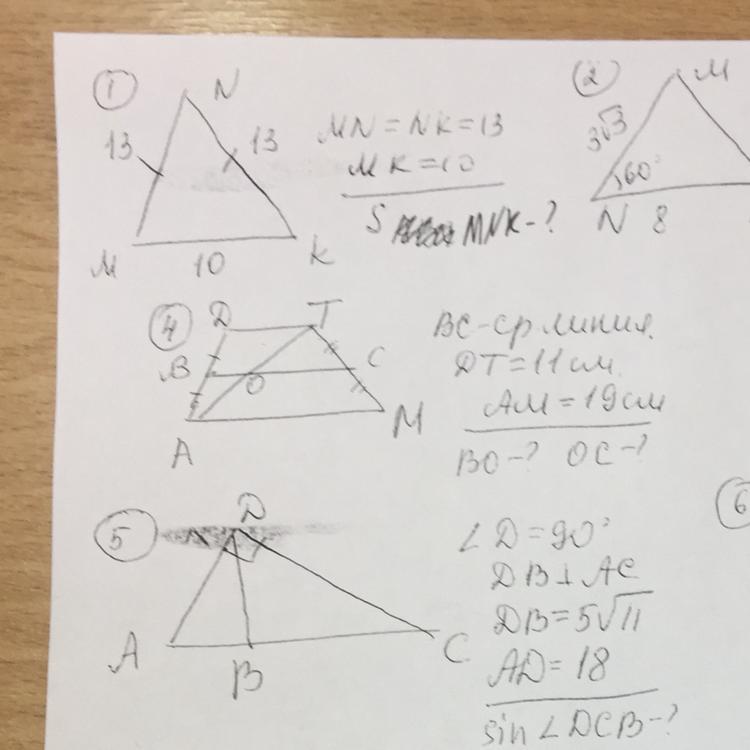 1
N
13
13
M
10
K
MN = NK = 13
MK = 10
S MNK - ?
2
M
3√3
60°
N 8
4
D T
B O C
A M
BC - ср. линия.
DT = 11 см.
AM = 19 см
BO - ? OC - ?
5
D
A B C
∠D = 90°
DB ⊥ AC
DB = 5√11
AD = 18
sin ∠DCB - ?
6